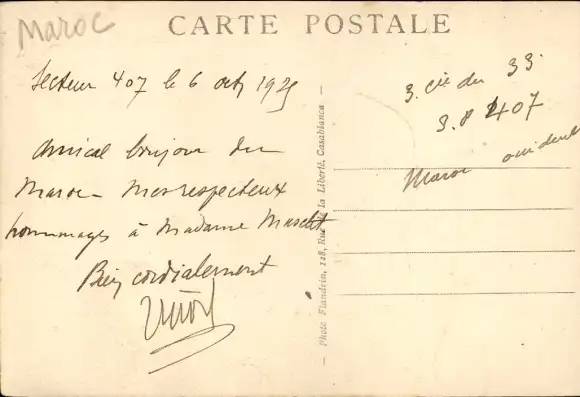 Maroc
CARTE POSTALE
Secteur 407 le 6 oct 1925
Amical bonjour du
Maroc - Mes respecteux
hommages à Madame
Bien cordialement
3. Cie du 33.
407
Maroc occidental
— Photo Flandrin, 128, Rue de la Liberté, Casablanca —